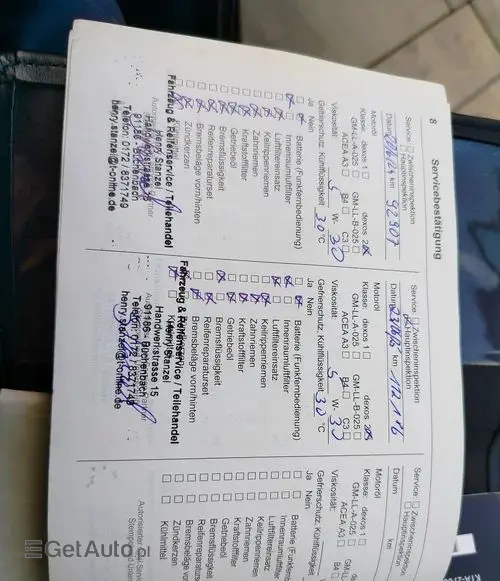 8 Servicebestätigung
Service: Zwischeninspektion
Hauptinspektion
Datum km 92907
Motoröl
Klasse: dexos 1 dexos 2
GM-LL-A-025 GM-LL-B-025
ACEA A3 B4 C3
Viskosität: 5 W- 30
Gefrierschutz, Kühlflüssigkeit 30 °C
Ja Nein
Batterie (Funkfernbedienung)
Innenraumluftfilter
Luftfiltereinsatz
Keilrippenriemen
Zahnriemen
Kraftstofffilter
Getriebeöl
Bremsflüssigkeit
Reifenreparaturset
Bremsbeläge vorn/hinten
Zündkerzen
Fahrzeug & Reifenservice / Teilehandel
Henry Stanzel
Handwerkstrasse 15
91186 - Büchenbach
Telefon: 0172 / 8371749
henry.stanzel@t-online.de
Service: Zwischeninspektion
Hauptinspektion
Datum km 112186
Motoröl
Klasse: dexos 1 dexos 2
GM-LL-A-025 GM-LL-B-025
ACEA A3 B4 C3
Viskosität: 5 W- 30
Gefrierschutz, Kühlflüssigkeit 30 °C
Ja Nein
Batterie (Funkfernbedienung)
Innenraumluftfilter
Luftfiltereinsatz
Keilrippenriemen
Zahnriemen
Kraftstofffilter
Getriebeöl
Bremsflüssigkeit
Reifenreparaturset
Bremsbeläge vorn/hinten
Fahrzeug & Reifenservice / Teilehandel
Henry Stanzel
Handwerkstrasse 15
91186 - Büchenbach
Telefon: 0172 / 8371749
henry.stanzel@t-online.de
Service: Zwischeninspektion
Hauptinspektion
Datum km
Motoröl
Klasse: dexos 1
GM-LL-A-025
ACEA A3 B4
Viskosität:
Gefrierschutz, Kühlflüssigkeit
Ja Nein
Batterie
Innenraumluftfilter
Luftfiltereinsatz
Keilrippenriemen
Zahnriemen
Kraftstofffilter
Getriebeöl
Bremsflüssigkeit
Reifenreparaturset
Bremsbeläge
Zündkerzen
Kühlmittel
GetAuto.pl